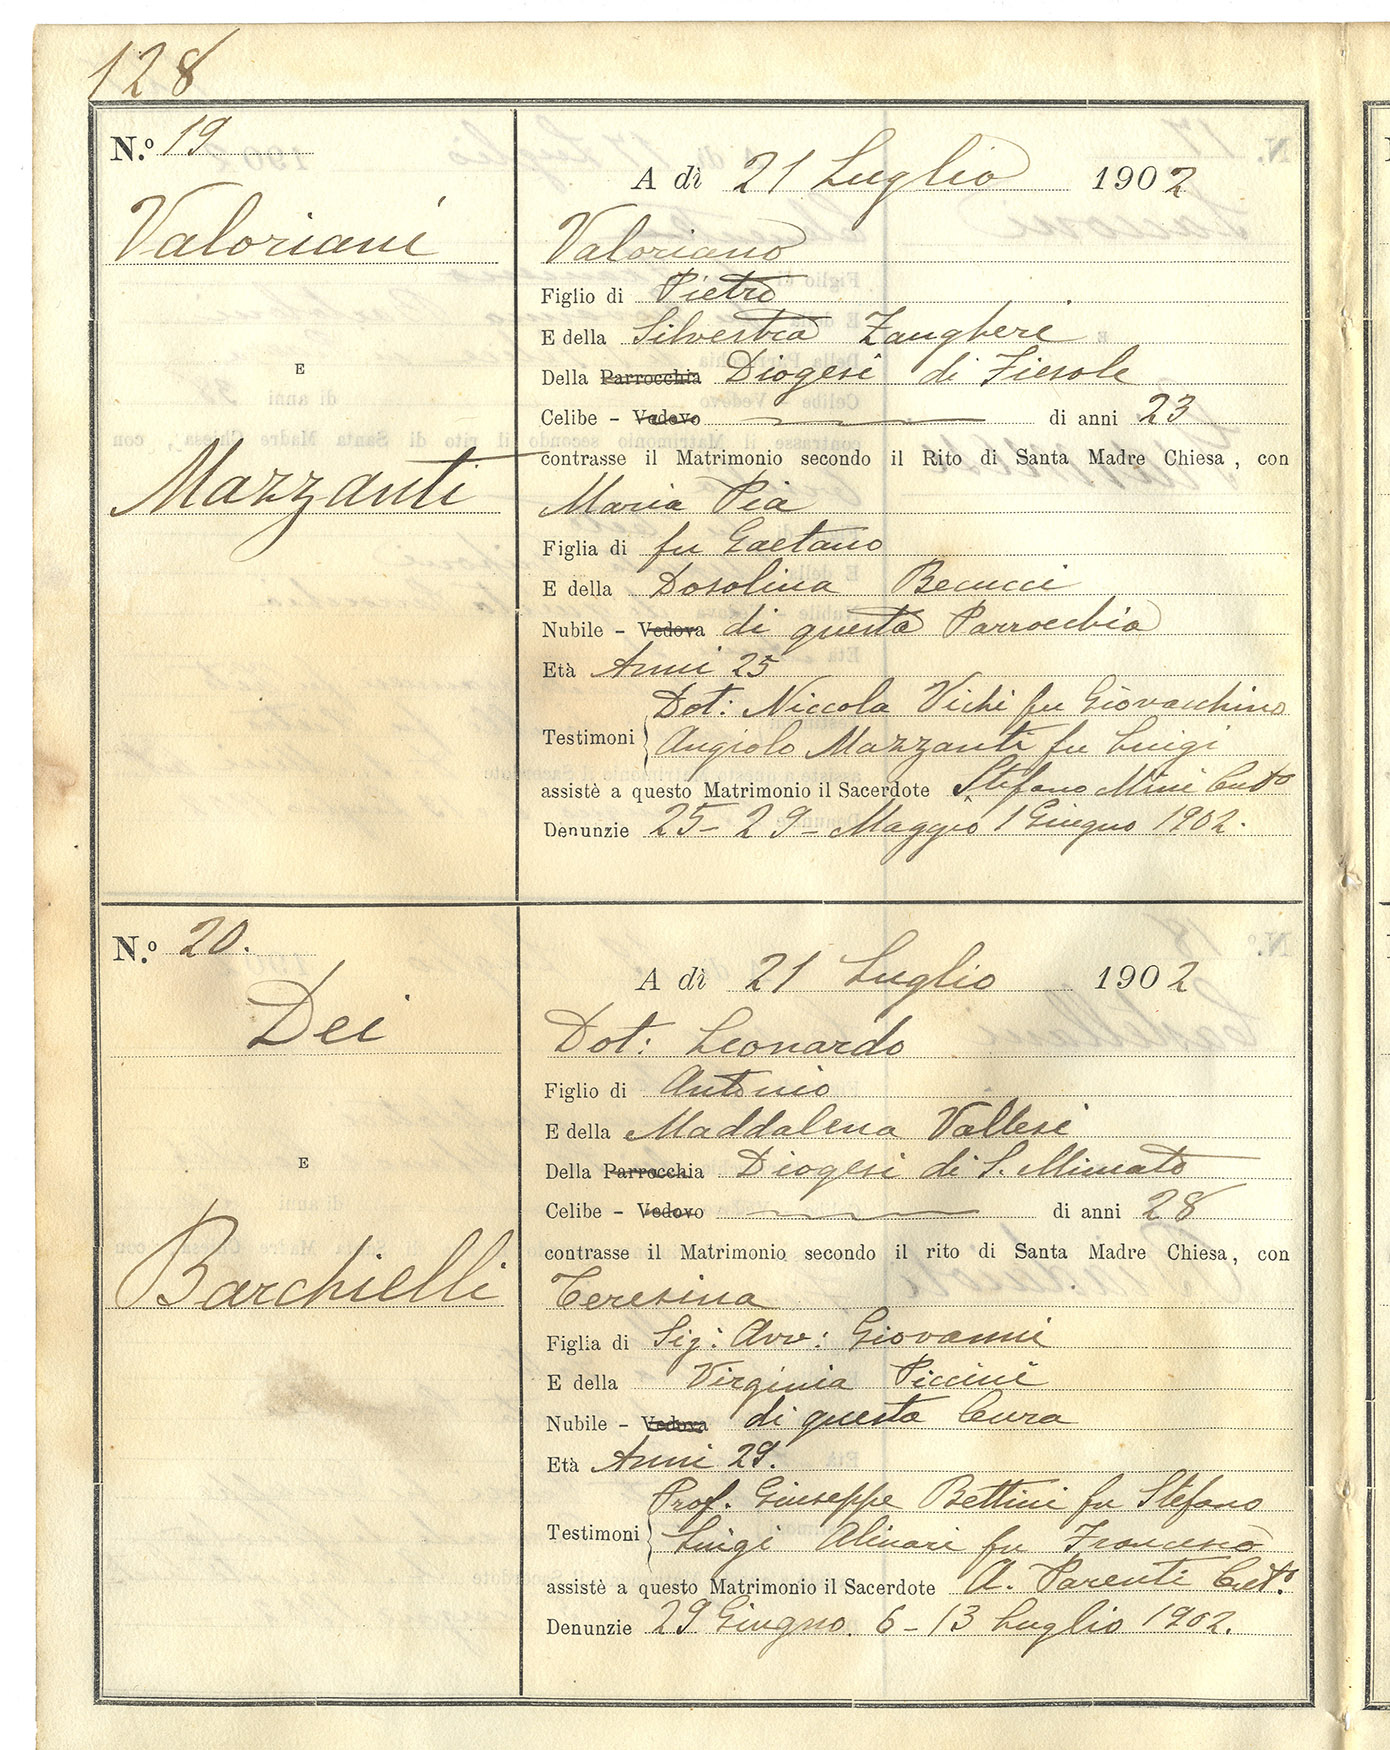 128
N.º 19
A dì 21 Luglio 1902
Valoriani
Valoriano
Figlio di Pietro
E della Silvestra Zangheri
E
Della Parrocchia Diogesi di Fiesole
Celibe - Vedovo di anni 23
contrasse il Matrimonio secondo il Rito di Santa Madre Chiesa, con
Mazzanti
Maria Pia
Figlia di fu Gaetano
E della Dosolina Becucci
Nubile - Vedova di questa Parrocchia
Età Anni 25
Dot: Niccola Vichi fu Giovacchino
Testimoni
Angiolo Mazzanti fu Luigi
assistè a questo Matrimonio il Sacerdote Stefano Mini
Denunzie 25 - 29 - Maggio 1 Giugno 1902.
N.º 20.
A dì 21 Luglio 1902
Dei
Dot: Leonardo
Figlio di Antonio
E della Maddalena Vallesi
E
Della Parrocchia Diogesi di S. Miniato
Celibe - Vedovo di anni 28
contrasse il Matrimonio secondo il rito di Santa Madre Chiesa, con
Barchielli
Teresina
Figlia di Sig: Avv: Giovanni
E della Virginia Piccini
Nubile - Vedova di questa Cura
Età Anni 29.
Prof. Giuseppe Bettini fu Stefano
Testimoni
Luigi Alinari fu Francesco
assistè a questo Matrimonio il Sacerdote A. Parenti
Denunzie 29 Giugno. 6 - 13 Luglio 1902.